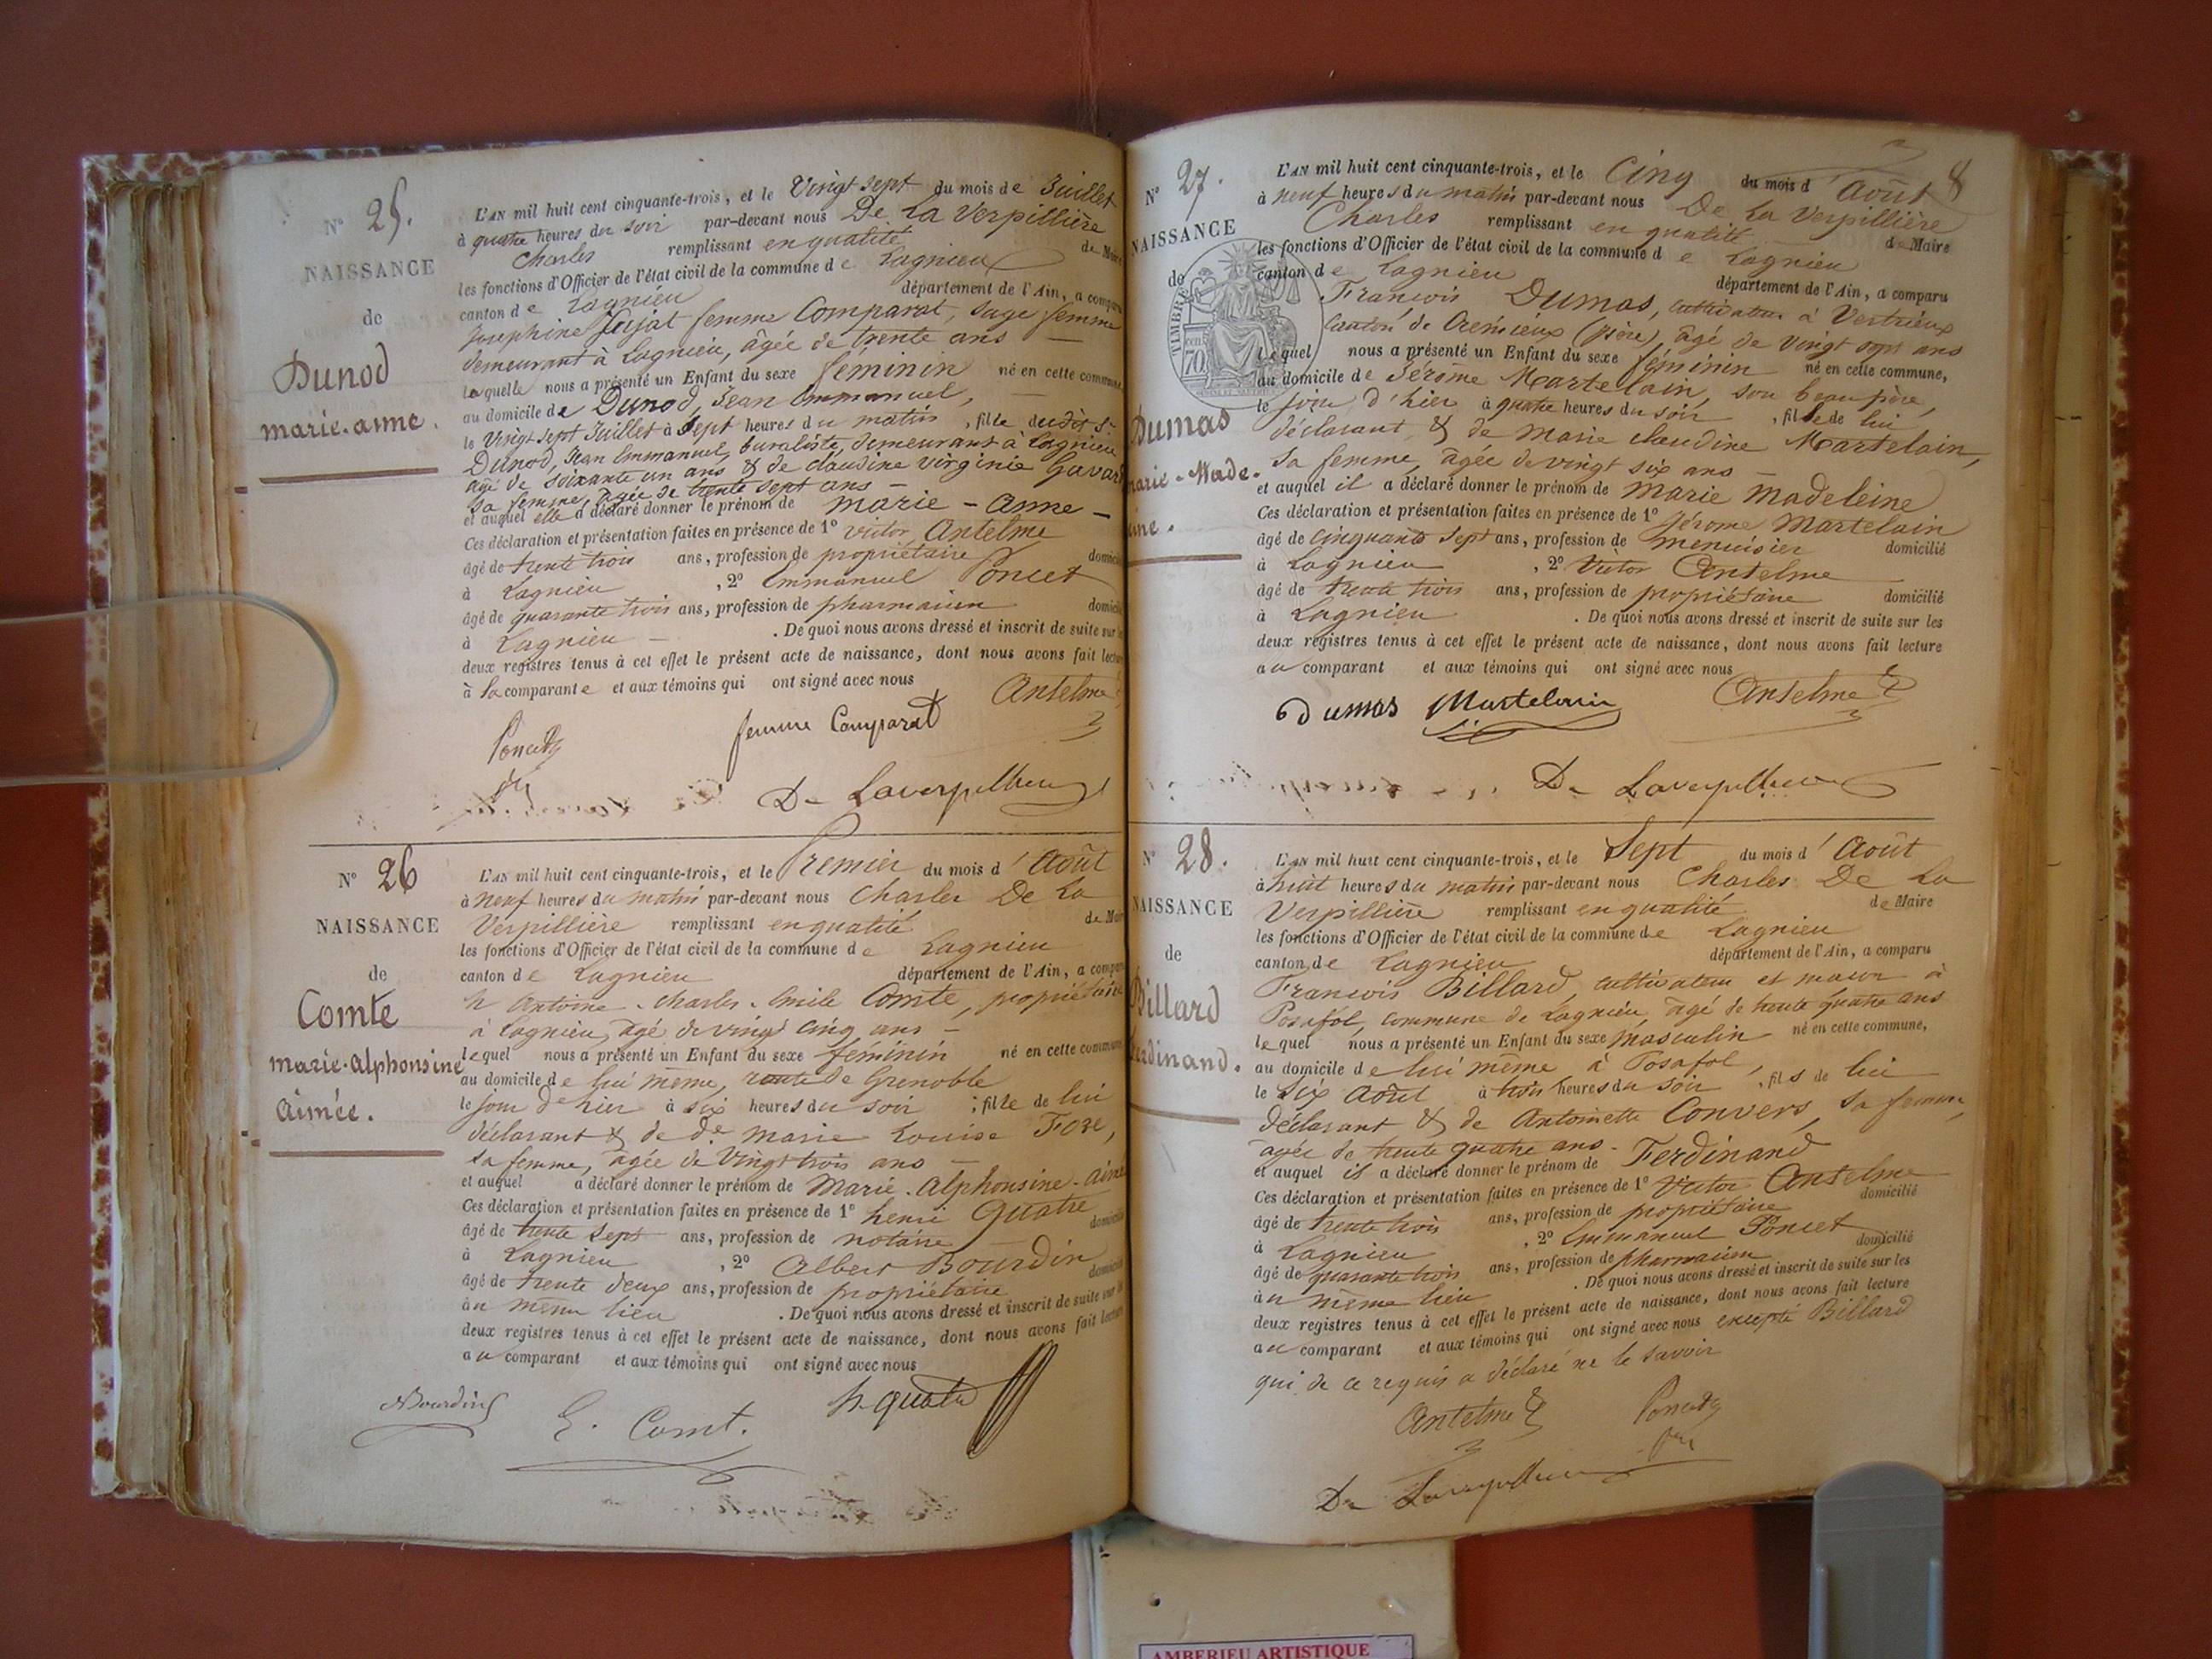 N° 25.
NAISSANCE
de
Dunod
marie-anne.
L'AN mil huit cent cinquante-trois, et le Vingt sept du mois de Juillet
à quatre heures du soir par-devant nous De La Verpillière
Charles remplissant en qualité de Maire
les fonctions d'Officier de l'état civil de la commune de Lagnieu
canton de Lagnieu département de l'Ain, a comparu
Josephine femme Comparat, sage femme
demeurant à Lagnieu, âgée de trente ans
laquelle nous a présenté un Enfant du sexe féminin né en cette commune,
au domicile de Dunod, Jean Emmanuel,
le Vingt sept Juillet à Sept heures du matin, fille dudit Sr
Dunod, Jean Emmanuel, buraliste, demeurant à Lagnieu
agé de soixante un ans & de claudine virginie Gavard
sa femme, âgée de trente sept ans
et auquel elle a déclaré donner le prénom de marie - anne -
Ces déclaration et présentation faites en présence de 1° victor Antelme
âgé de trente trois ans, profession de propriétaire domicilié
à Lagnieu, 2° Emmanuel Poncet
âgé de quarante trois ans, profession de pharmacien domicilié
à Lagnieu - . De quoi nous avons dressé et inscrit de suite sur les
deux registres tenus à cet effet le présent acte de naissance, dont nous avons fait lecture
à la comparante et aux témoins qui ont signé avec nous
Antelme
Poncet
femme Comparat
De Laverpilliere
N° 26
NAISSANCE
de
Comte
marie-alphonsine
aimée.
L'AN mil huit cent cinquante-trois, et le Premier du mois d'Août
à neuf heures du matin par-devant nous Charles De La
Verpillière remplissant en qualité de Maire
les fonctions d'Officier de l'état civil de la commune de Lagnieu
canton de Lagnieu département de l'Ain, a comparu
Antoine-Charles-Emile Comte, propriétaire
à Lagnieu, âgé de vingt cinq ans -
lequel nous a présenté un Enfant du sexe féminin né en cette commune
au domicile de lui même, route de Grenoble
le jour d'hier à six heures du soir ; fille de lui
déclarant & de de marie Louise
sa femme, âgée de Vingt trois ans
et auquel a déclaré donner le prénom de Marie-Alphonsine-aimé
Ces déclaration et présentation faites en présence de 1° henri Quatre
âgé de trente sept ans, profession de notaire domicilié
à Lagnieu, 2° Albert Bourdin
âgé de trente deux ans, profession de propriétaire domicilié
au même lieu . De quoi nous avons dressé et inscrit de suite sur les
deux registres tenus à cet effet le présent acte de naissance, dont nous avons fait lecture
au comparant et aux témoins qui ont signé avec nous
Bourdin
E. Comt.
h. quatre
8
N° 27.
NAISSANCE
de
Dumas
marie-Made-
eine.
TIMBRE
70
L'AN mil huit cent cinquante-trois, et le Cinq du mois d'Août
à neuf heures du matin par-devant nous De La Verpillière
Charles remplissant en qualité de Maire
les fonctions d'Officier de l'état civil de la commune de Lagnieu
canton de Lagnieu département de l'Ain, a comparu
François Dumas, cultivateur à Vertrieux
Canton de Crémieux (Isère), âgé de vingt sept ans
lequel nous a présenté un Enfant du sexe féminin né en cette commune,
au domicile de Jérome Martelain, son beau père,
le jour d'hier à quatre heures du soir, fille de lui
déclarant & de marie claudine Martelain,
sa femme, âgée de vingt six ans
et auquel il a déclaré donner le prénom de Marie madeleine
Ces déclaration et présentation faites en présence de 1° Jérome Martelain
âgé de cinquante sept ans, profession de menuisier domicilié
à Lagnieu, 2° Victor Antelme
âgé de trente trois ans, profession de propriétaire domicilié
à Lagnieu . De quoi nous avons dressé et inscrit de suite sur les
deux registres tenus à cet effet le présent acte de naissance, dont nous avons fait lecture
au comparant et aux témoins qui ont signé avec nous
Dumas Martelain Antelme
De Laverpilliere
N° 28.
NAISSANCE
de
Billard
Ferdinand.
L'AN mil huit cent cinquante-trois, et le Sept du mois d'Août
à huit heures du matin par-devant nous Charles De La
Verpillière remplissant en qualité de Maire
les fonctions d'Officier de l'état civil de la commune de Lagnieu
canton de Lagnieu département de l'Ain, a comparu
François Billard, cultivateur et maçon à
Posafol, commune de Lagnieu, âgé de trente quatre ans
lequel nous a présenté un Enfant du sexe masculin né en cette commune,
au domicile de lui même à Posafol,
le Six Août à trois heures du soir, fils de lui
déclarant & de Antoinette Convers, sa femme,
agée de trente quatre ans -
et auquel il a déclaré donner le prénom de Ferdinand
Ces déclaration et présentation faites en présence de 1° Victor Antelme
âgé de trente trois ans, profession de propriétaire domicilié
à Lagnieu, 2° Emmanuel Poncet
âgé de quarante trois ans, profession de pharmacien domicilié
au même lieu . De quoi nous avons dressé et inscrit de suite sur les
deux registres tenus à cet effet le présent acte de naissance, dont nous avons fait lecture
au comparant et aux témoins qui ont signé avec nous excepté Billard
qui de ce requis a déclaré ne le savoir
Antelme Poncet
De Laverpilliere
AMBERIEU ARTISTIQUE